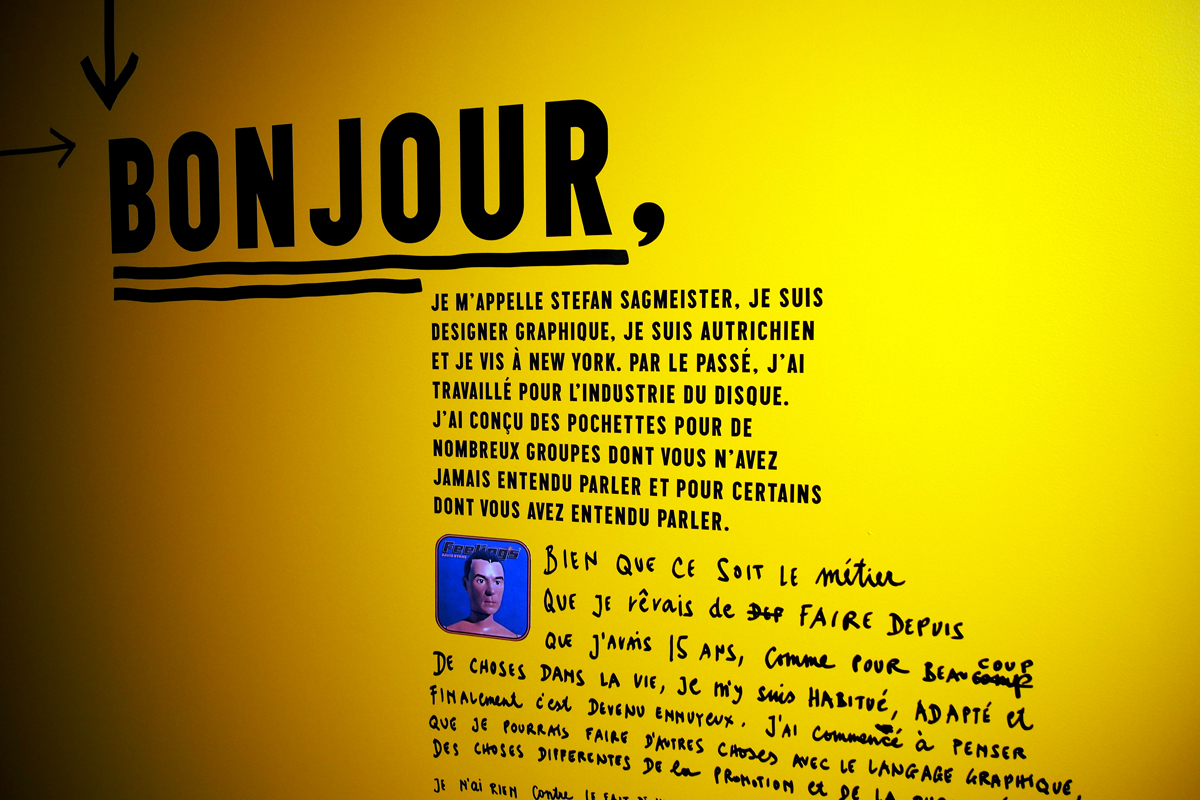 BONJOUR,
JE M'APPELLE STEFAN SAGMEISTER, JE SUIS
DESIGNER GRAPHIQUE, JE SUIS AUTRICHIEN
ET JE VIS À NEW YORK. PAR LE PASSÉ, J'AI
TRAVAILLÉ POUR L'INDUSTRIE DU DISQUE.
J'AI CONÇU DES POCHETTES POUR DE
NOMBREUX GROUPES DONT VOUS N'AVEZ
JAMAIS ENTENDU PARLER ET POUR CERTAINS
DONT VOUS AVEZ ENTENDU PARLER.
Feelings
BIEN QUE CE SOIT LE métier
QUE JE rêvais de FAIRE DEPUIS
QUE J'AVAIS 15 ANS, comme POUR BEAUCOUP
DE CHOSES DANS LA VIE, JE m'y suis HABITUÉ, ADAPTÉ et
FINALement c'est DEVENU ENNUYEUX. J'AI commencé à PENSER
QUE JE POURRAIS FAIRE D'AUTRES CHOSES AVEC LE LANGAGE GRAPHIQUE,
DES CHOSES DIFFERENTES DE la PROMOTION et DE LA
JE N'ai RIEN Contre LE FAIT